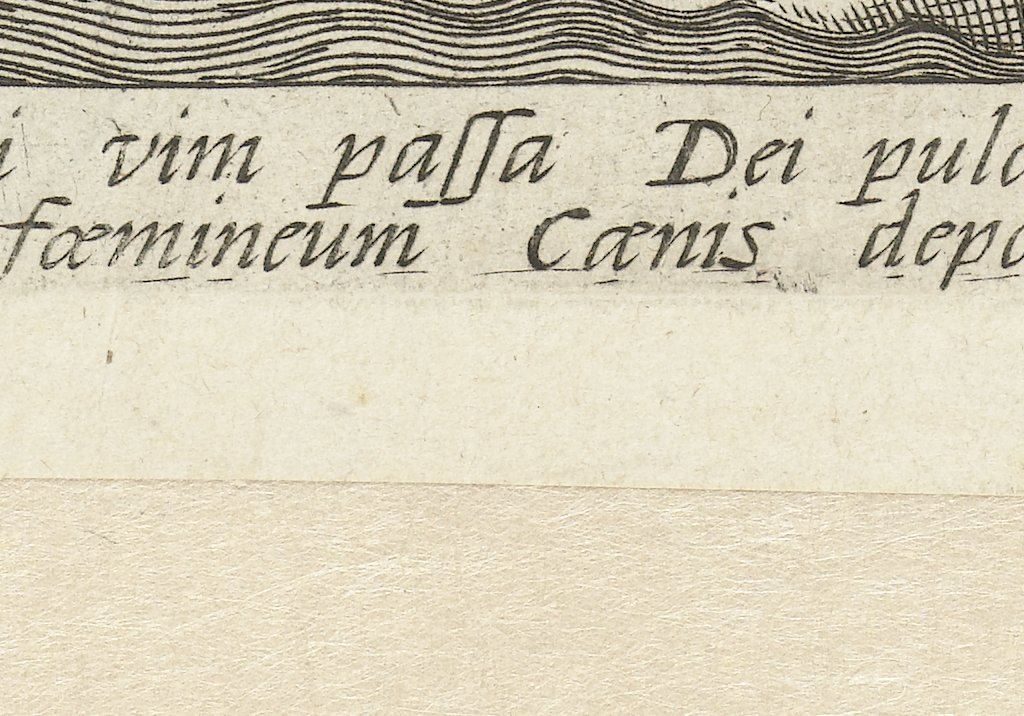 i vim paſſa Dei pulc
fœmineum Cænis depo